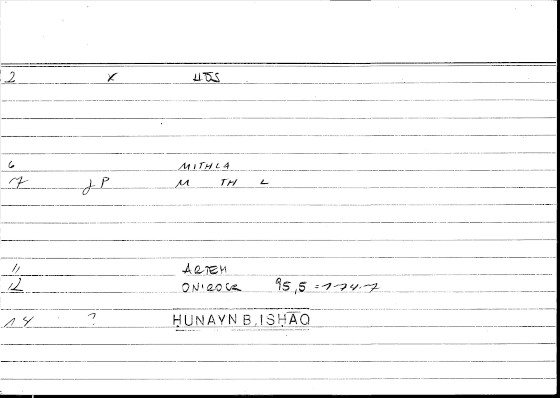 2 x
6 MITHLA
7 J P M TH L
11 ARTEM
12 ONIROCR 95,5 = 174.7
14 ? ḤUNAYN B. ISḤĀQ